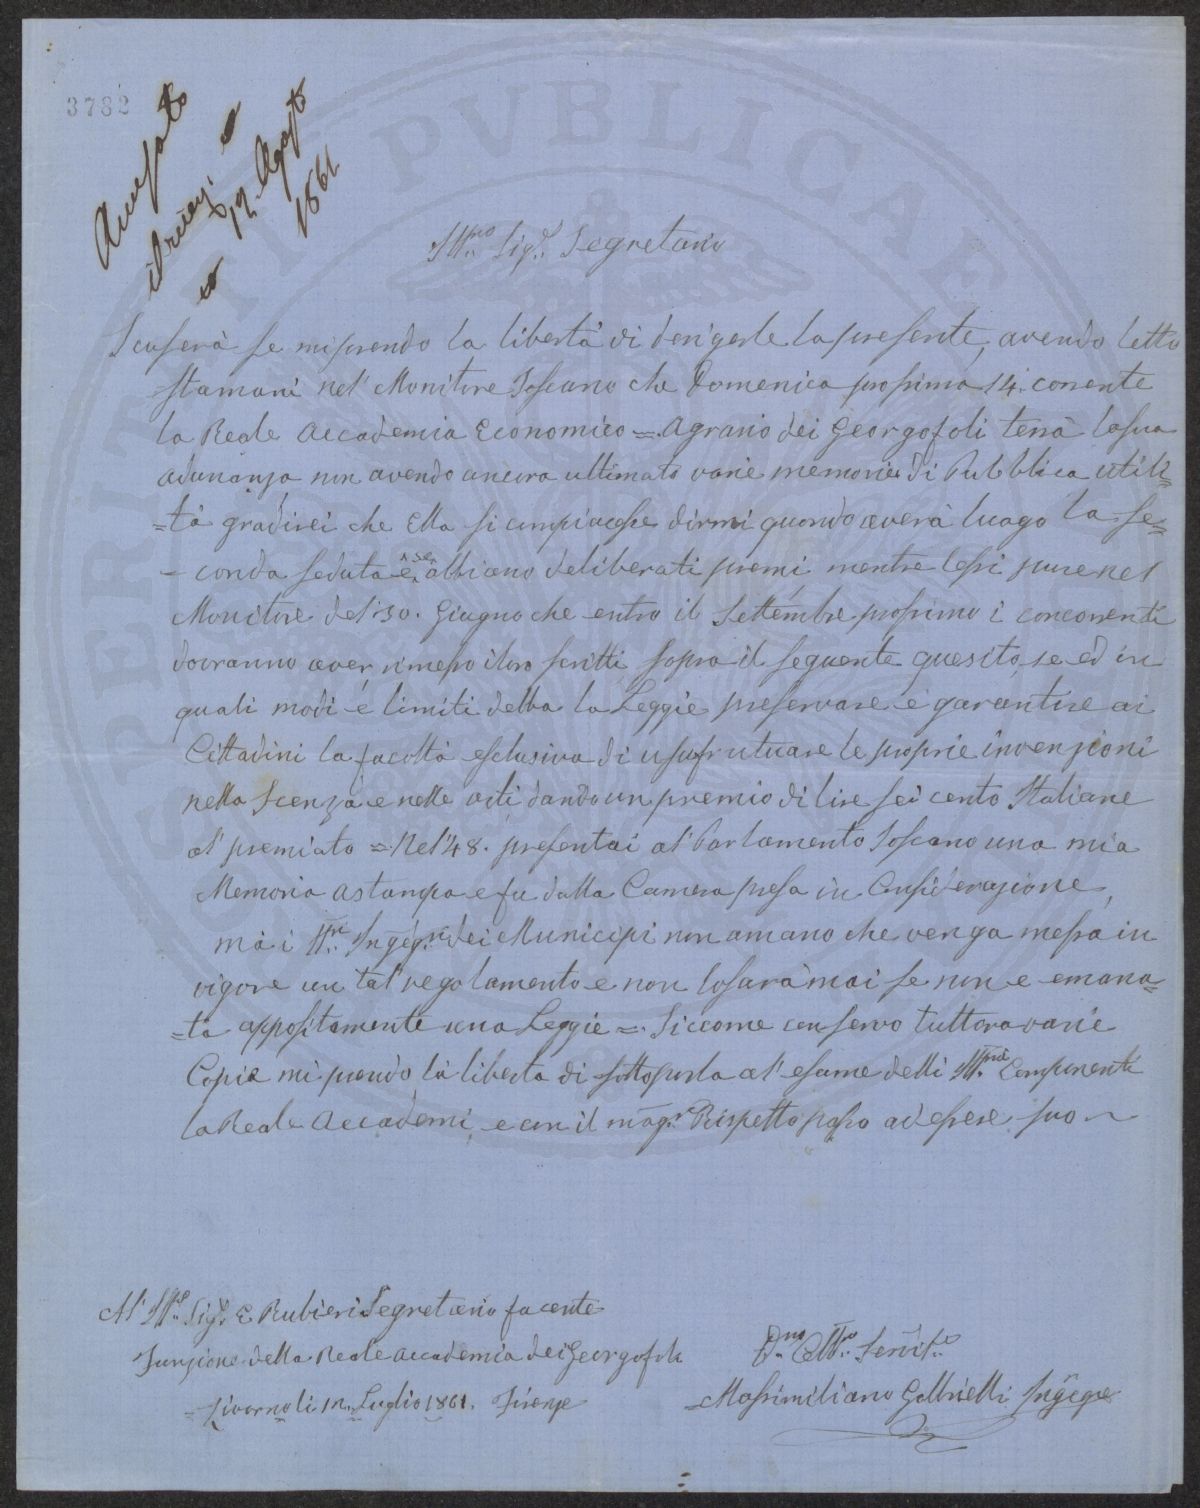 3782
12. Agosto
1861
Ill.mo Sig.r Segretario
Scuserà se mi prendo la libertà di derigerle la presente, avendo letto
stamani nel' Monitore Toscano che Domenica prossima 14. corrente
la Reale Accademia Economico = Agrario dei Georgofoli terrà la sua
adunanza non avendo ancora ultimato varie memorie di Pubblica utili=
=tà gradirei che Ella si compiacesse dirmi quando averà luogo la se=
= conda seduta e se abbiano deliberati premi mentre lessi pure nel
Monitore del' 30. Giugno che entro il Settembre prossimo i concorrenti
dovranno aver rimesso i loro scritti sopra il seguente quesito, se ed in
quali modi é limiti debba la Leggie preservare e garantire ai
Cittadini la facoltà esclusiva di usufrutuare le proprie invenzioni
nella Scenza e nelle arti dando un premio di lire sei cento Italiane
al' premiato = Nel' 48. presentai al' Parlamento Toscano una mia
Memoria a stampa e fu dalla Camera presa in Considerazione,
mà i Ill.ri Ingeg.ri dei Municipi non amano che venga messa in
vigore un tal' regolamento e non lo sarà mai se non e emana=
=ta appositamente una Leggie =. Siccome conservo tuttora varie
Copie mi prendo là libertà di sottoporla al' esame delli Ill.mi Componenti
la Reale Accademi, e con il mag.r Rispetto passo ad essere suo
Al' Ill. Sig.r E Rubieri Segretario facente
Funzione della Reale Accademia dei Georgofoli
Livorno li 12. Luglio 1861. Firenze
D.mo Obb.mo Servit.e
Massimiliano Gabbrielli Ingeg.e
SPERITATI PVBLICAE